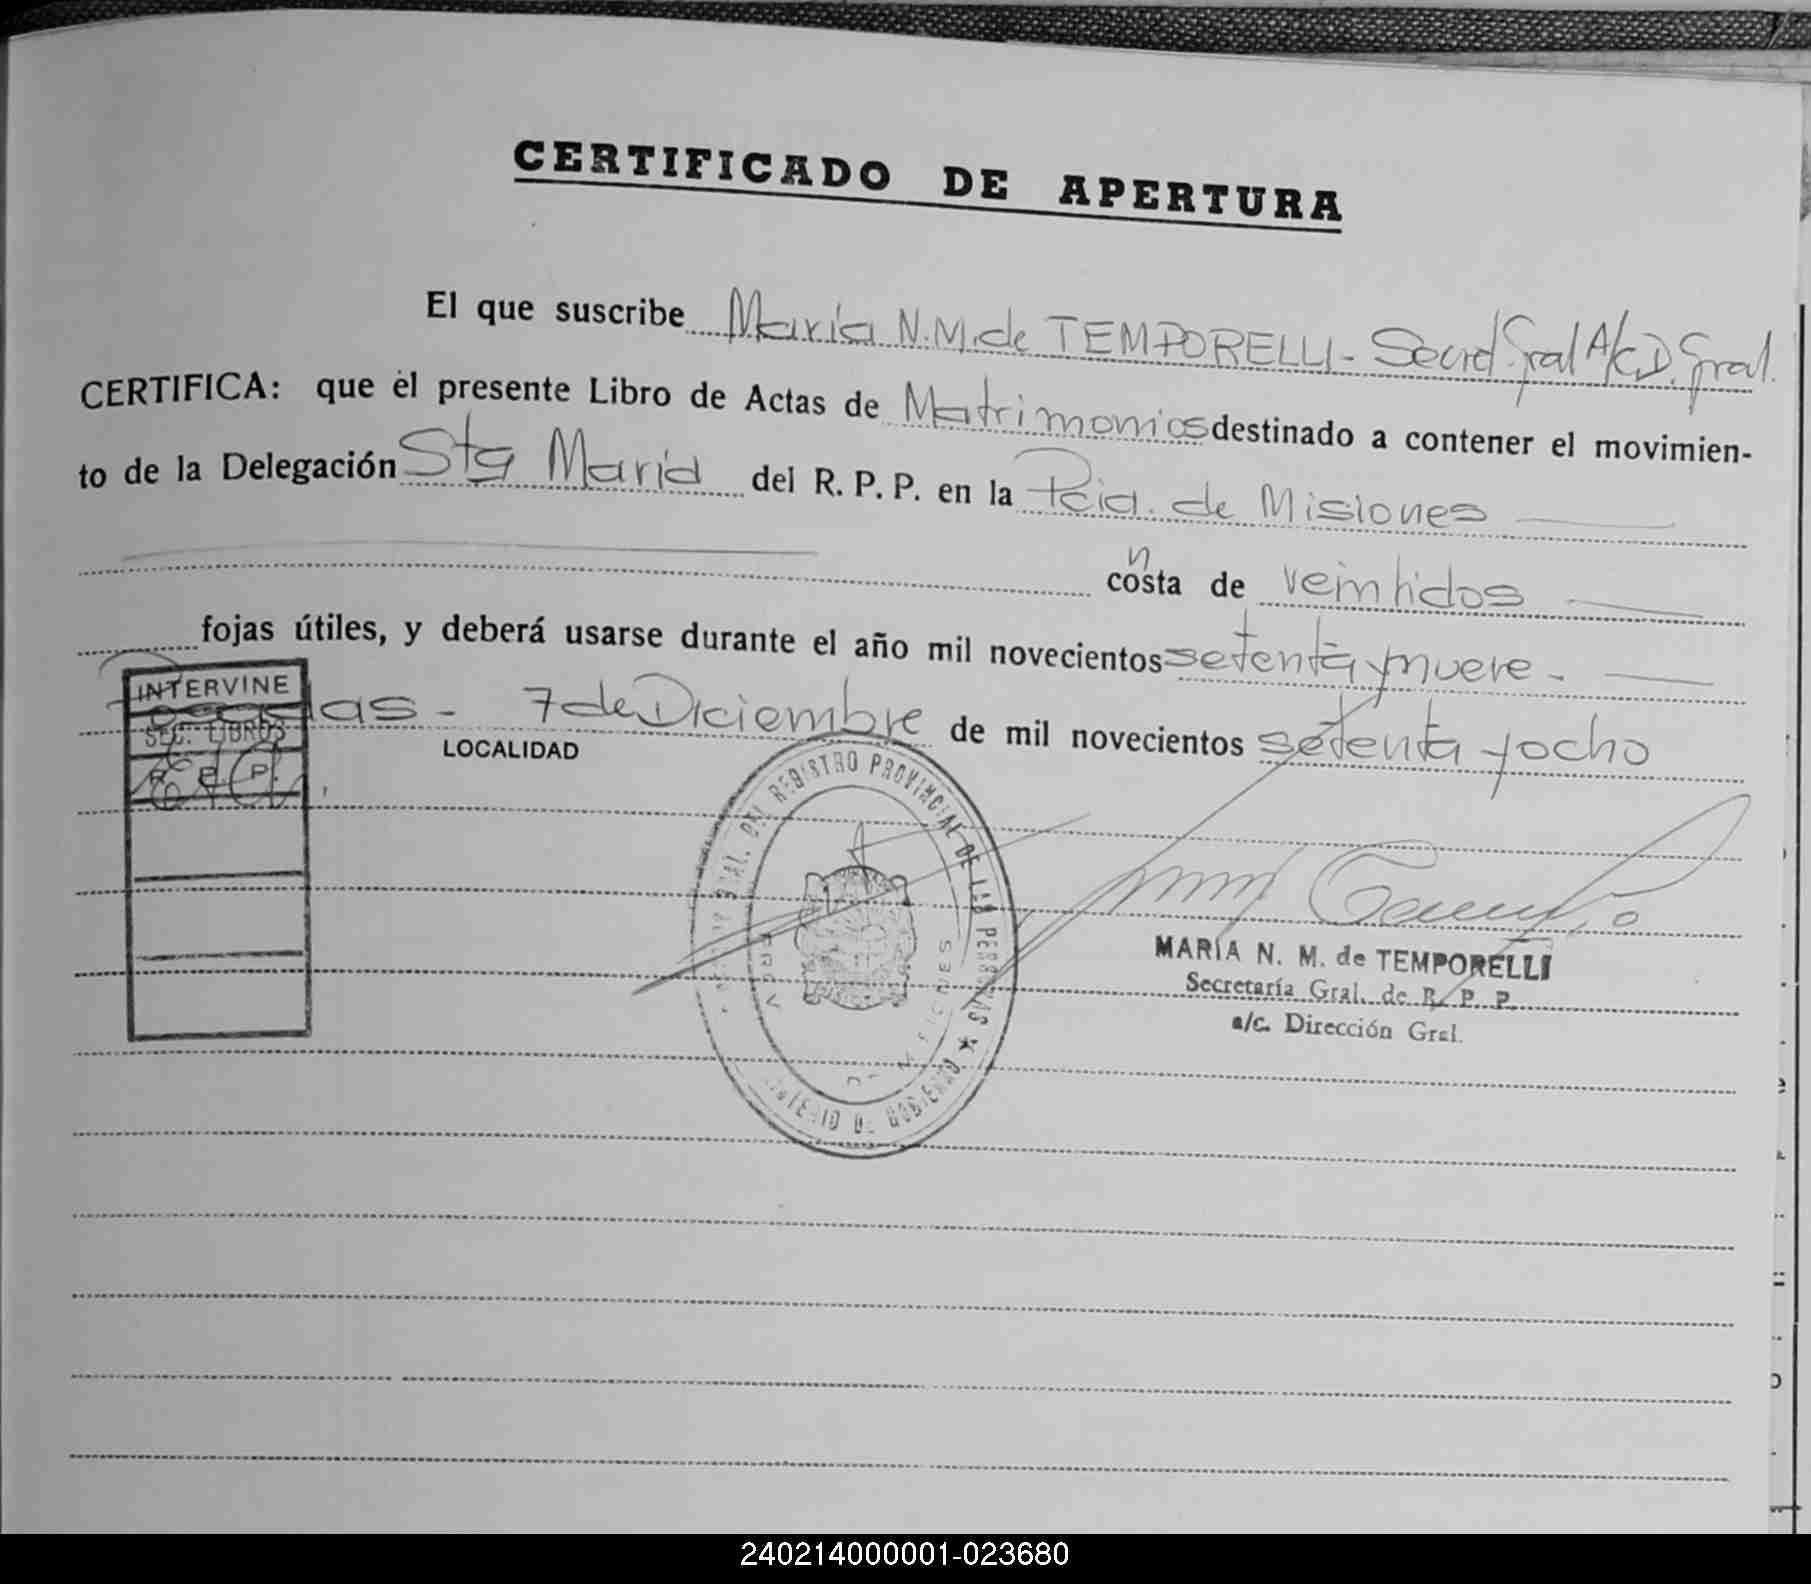 CERTIFICADO DE APERTURA
El que suscribe María N.M. de TEMPORELLI - Secrd. Gral A/C D. Gral.
CERTIFICA: que el presente Libro de Actas de Matrimonios destinado a contener el movimien-
to de la Delegación Sta María del R. P. P. en la Pcia. de Misiones
n
costa de veintidos
fojas útiles, y deberá usarse durante el año mil novecientos setenta y nueve.
Posadas - 7 de Diciembre de mil novecientos setenta y ocho
LOCALIDAD
INTERVINE
SEC. LIBROS
R. P. P.
GRAL. DEL REGISTRO PROVINCIAL DE LAS PERSONAS ★
MINISTERIO DE GOBIERNO
PROV. DE MISIONES
MARIA N. M. de TEMPORELLI
Secretaría Gral. de R. P. P.
a/c. Dirección Gral.
240214000001-023680